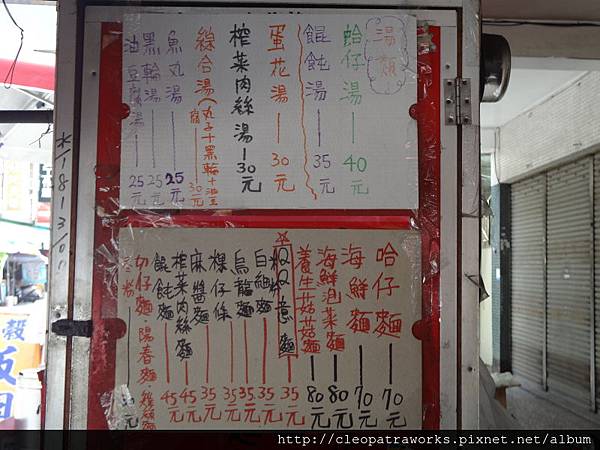 湯類
蛤仔湯—40元
餛飩湯—35元
蛋花湯—30元
榨菜肉絲湯—30元
綜合湯(丸子+黑輪+
30元
魚丸湯—25元
黑輪湯—25元
油豆腐湯—25元
哈仔麵—70元
海鮮麵—70元
海鮮泡菜麵—80元
養生菇菇麵—80元
意麵—35元
白細麵—35元
烏龍麵—35元
粿仔條—35元
麻醬麵—35元
榨菜肉絲麵—45元
餛飩麵—45元
切仔麵 陽春麵
http://cleopatraworks.pixnet.net/album